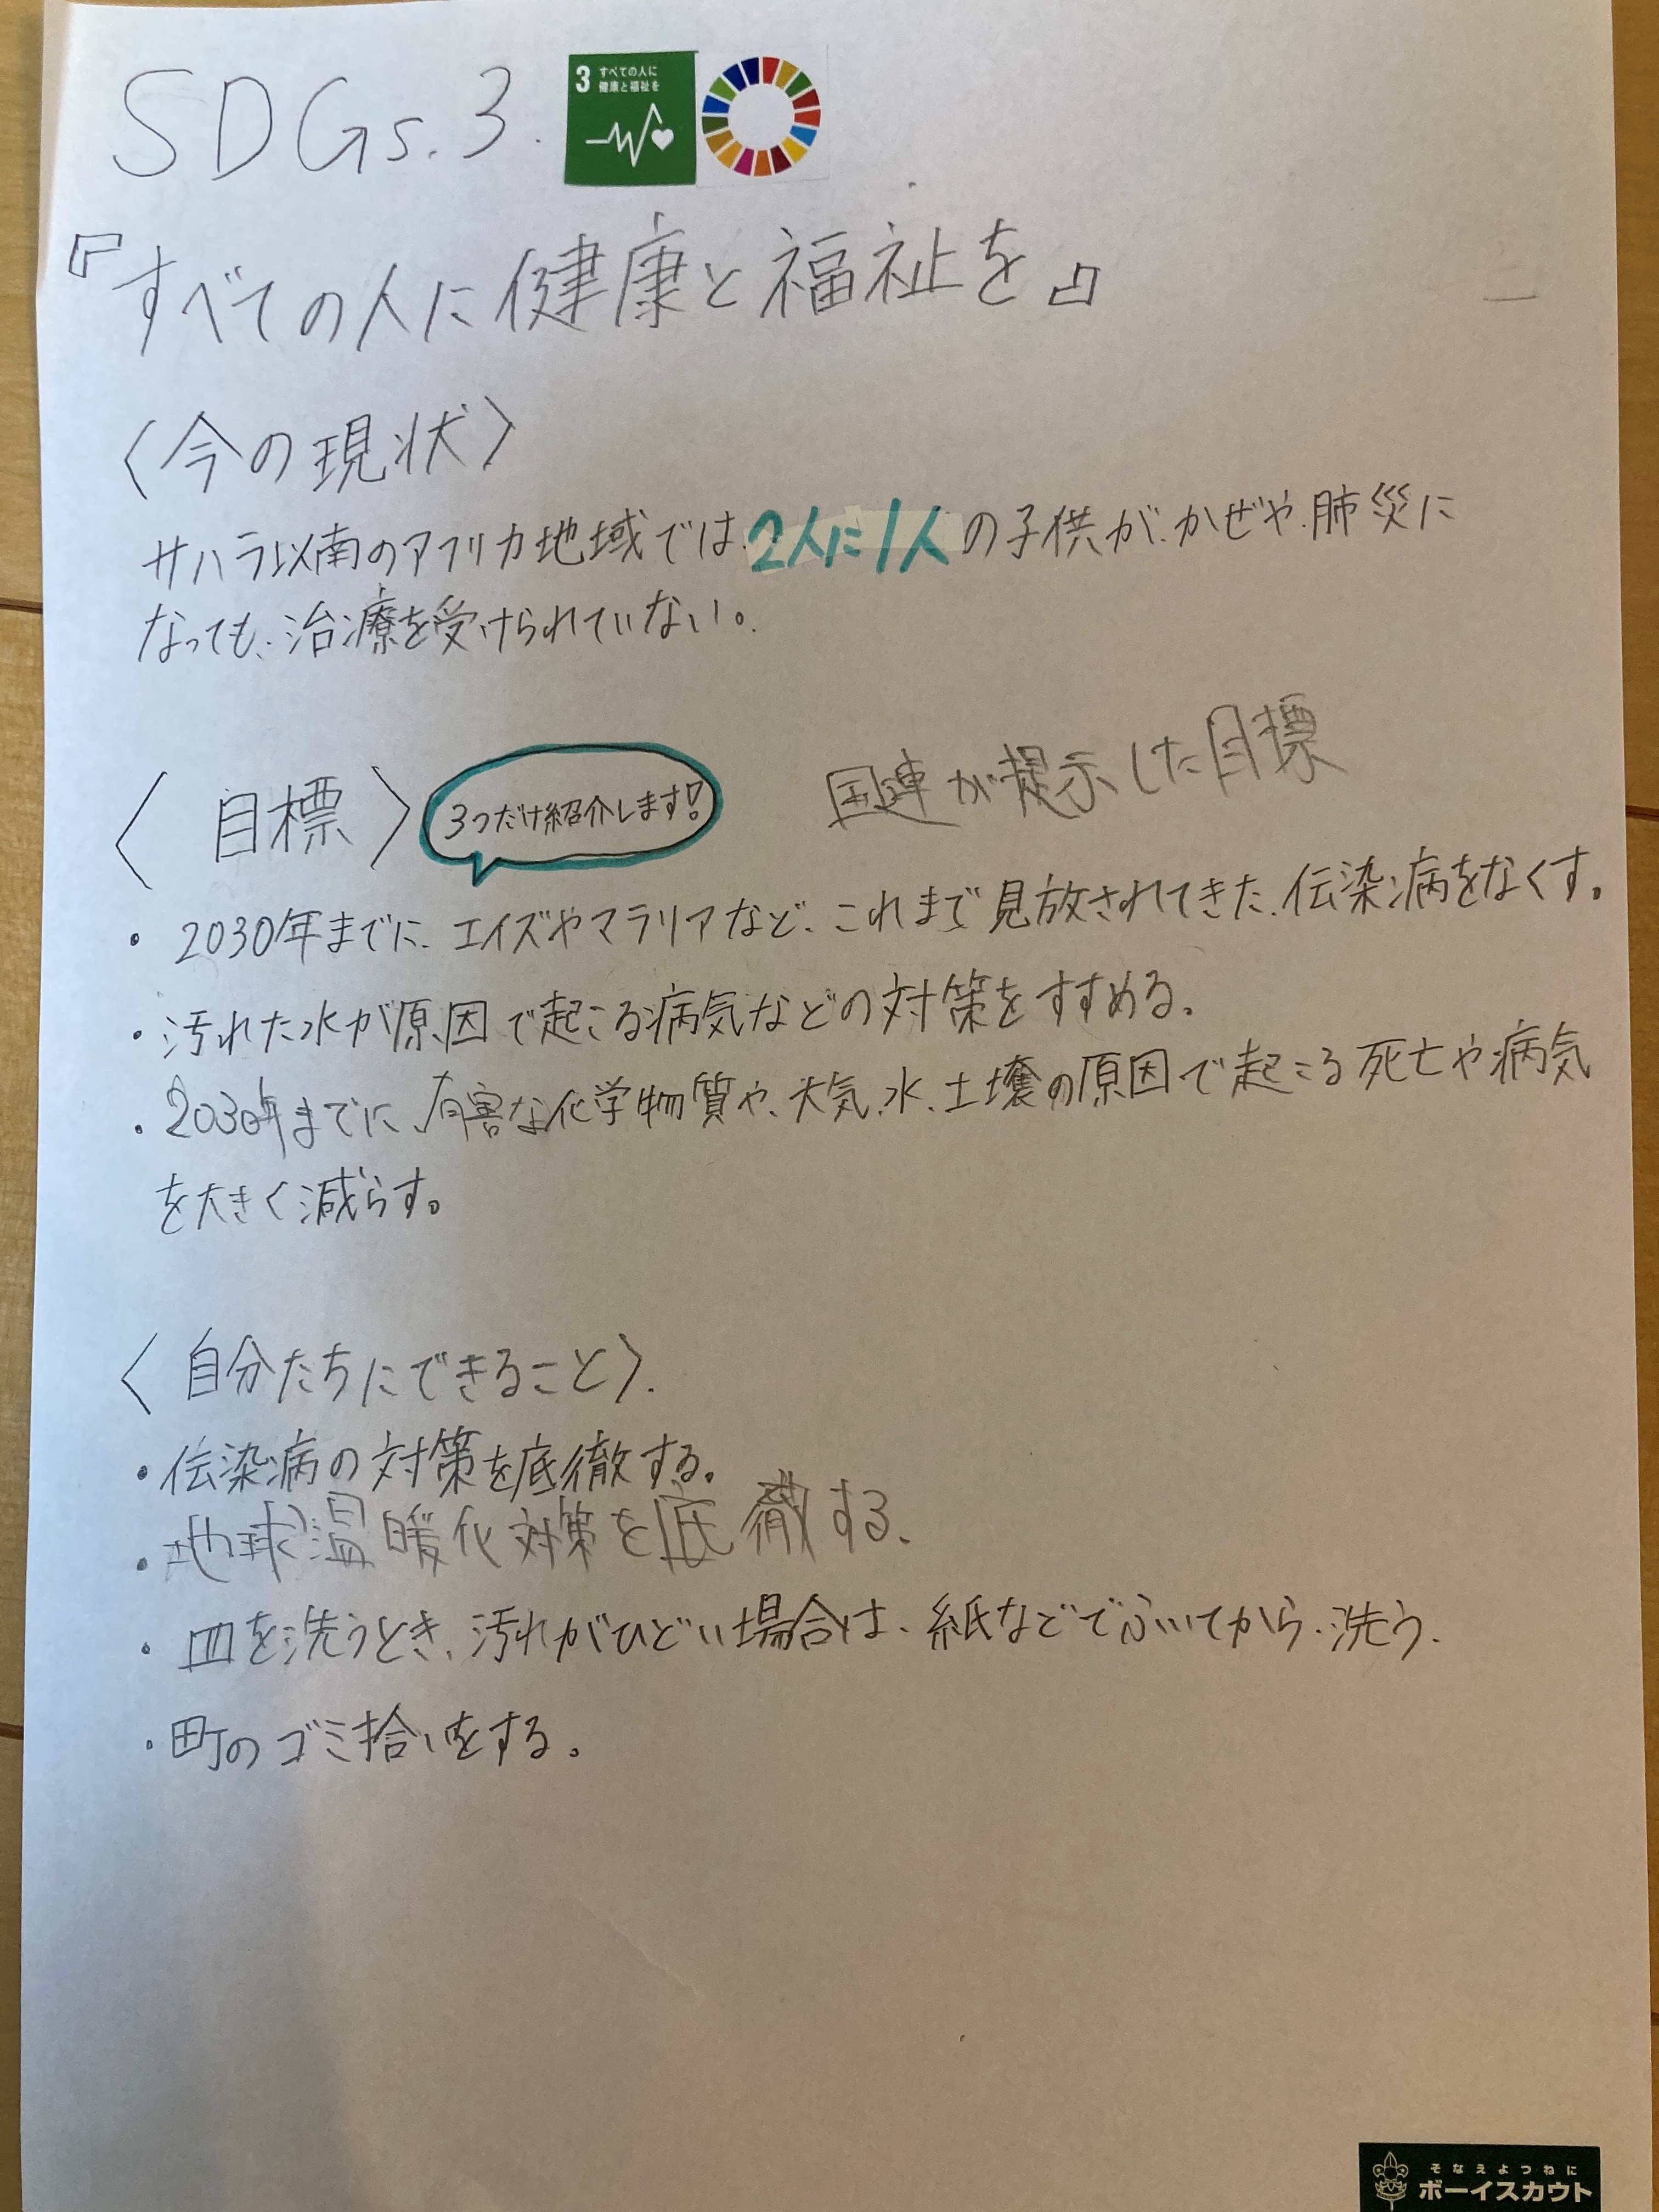 SDGs.3.
3 すべての人に
健康と福祉を
『すべての人に健康と福祉を』
〈今の現状〉
サハラ以南のアフリカ地域では、2人に1人の子供が、かぜや、肺災に
なっても、治療を受けられていない。
〈目標〉
3つだけ紹介します!
国連が提示した目標
・2030年までに、エイズやマラリアなど、これまで見放されてきた、伝染病をなくす。
・汚れた水が原因で起こる病気などの対策をすすめる。
・2030年までに、有害な化学物質や、大気、水、土壌の原因で起こる死亡や病気
を大きく減らす。
〈自分たちにできること〉.
・伝染病の対策を底徹する。
・地球温暖化対策を底徹する、
・皿を洗うとき、汚れがひどい場合は、紙などでふいてから、洗う、
・町のゴミ拾いをする。
そなえよつねに
ボーイスカウト